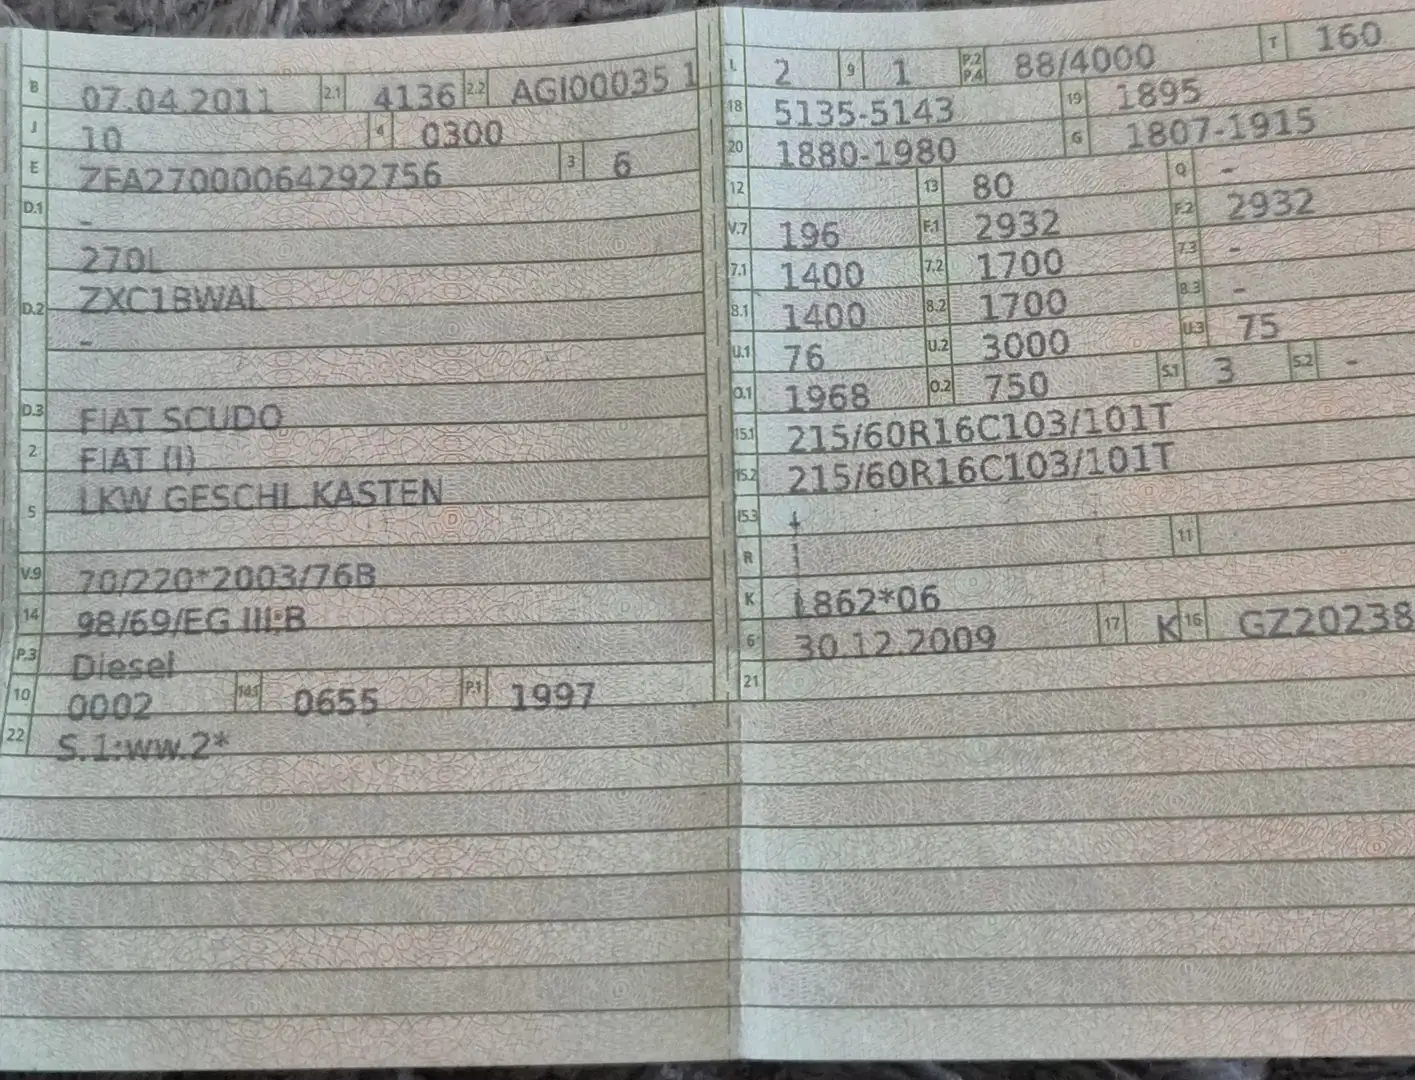 B 07.04.2011 2.1 4136 2.2 AGI00035 1
J 10 4 0300
E ZFA27000064292756 3 6
D.1 -
270L
D.2 ZXC1BWAL
-
D.3 FIAT SCUDO
2 FIAT (I)
5 LKW GESCHL.KASTEN
V.9 70/220*2003/76B
14 98/69/EG III;B
P.3 Diesel
10 0002 14.1 0655 P.1 1997
22 S.1:ww.2*
L 2 9 1 P.2 P.4 88/4000 T 160
18 5135-5143 19 1895
20 1880-1980 G 1807-1915
12 13 80 Q -
V.7 196 F.1 2932 F.2 2932
7.1 1400 7.2 1700 7.3 -
8.1 1400 8.2 1700 8.3 -
U.1 76 U.2 3000 U.3 75
O.1 1968 O.2 750 S.1 3 S.2 -
15.1 215/60R16C103/101T
15.2 215/60R16C103/101T
15.3
R 11
K L862*06
6 30.12.2009 17 K 16 GZ20238
21